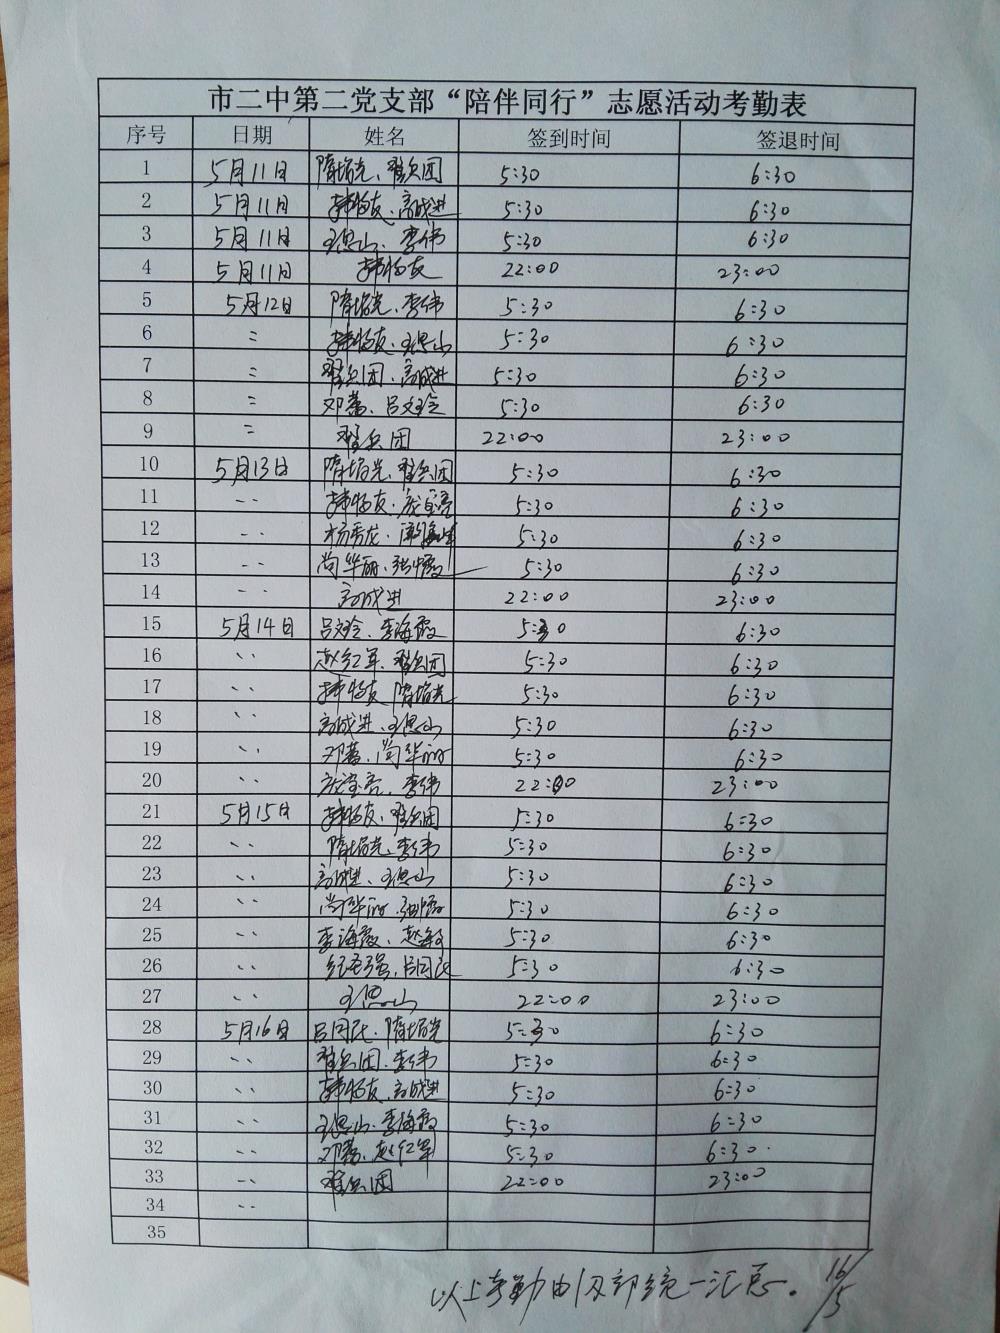 市二中第二党支部“陪伴同行”志愿活动考勤表
序号 日期 姓名 签到时间 签退时间
1 5月11日 隋培光、翟兵团 5:30 6:30
2 5月11日 韩明友、高成进 5:30 6:30
3 5月11日 王思山、李伟 5:30 6:30
4 5月11日 韩明友 22:00 23:00
5 5月12日 隋培光、李伟 5:30 6:30
6 = 韩明友、王思山 5:30 6:30
7 = 翟兵团、高成进 5:30 6:30
8 = 邓蕾、吕文玲 5:30 6:30
9 = 翟兵团 22:00 23:00
10 5月13日 隋培光、翟兵团 5:30 6:30
11 .. 韩明友、庞宝亮 5:30 6:30
12 .. 杨秀龙、 5:30 6:30
13 .. 尚华丽、张 霞 5:30 6:30
14 .. 高成进 22:00 23:00
15 5月14日 吕文玲、李海霞 5:30 6:30
16 .. 赵红军、翟兵团 5:30 6:30
17 .. 韩明友 隋培光 5:30 6:30
18 .. 高成进、王思山 5:30 6:30
19 .. 邓蕾、尚华丽 5:30 6:30
20 .. 庞宝亮、李伟 22:00 23:00
21 5月15日 韩明友、翟兵团 5:30 6:30
22 .. 隋培光、李伟 5:30 6:30
23 .. 高成进、王思山 5:30 6:30
24 .. 尚华丽、张 霞 5:30 6:30
25 .. 李海霞、赵敏 5:30 6:30
26 .. 纪圣强、吕同民 5:30 6:30
27 .. 王思山 22:00 23:00
28 5月16日 吕同民、隋培光 5:30 6:30
29 .. 翟兵团、李伟 5:30 6:30
30 .. 韩明友、高成进 5:30 6:30
31 .. 王思山、李海霞 5:30 6:30
32 .. 邓蕾、赵红军 5:30 6:30
33 .. 翟兵团 22:00 23:00
34 ..
35
以上考勤由级部统一汇总。 16/5